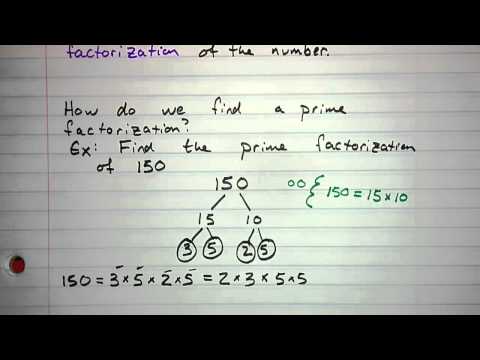 factorization of the number.
How do we find a prime
factorization?
Ex: Find the prime factorization
of 150
150
15 10
3 5 2 5
150 = 15 × 10
150 = 3 × 5 × 2 × 5 = 2 × 3 × 5 × 5